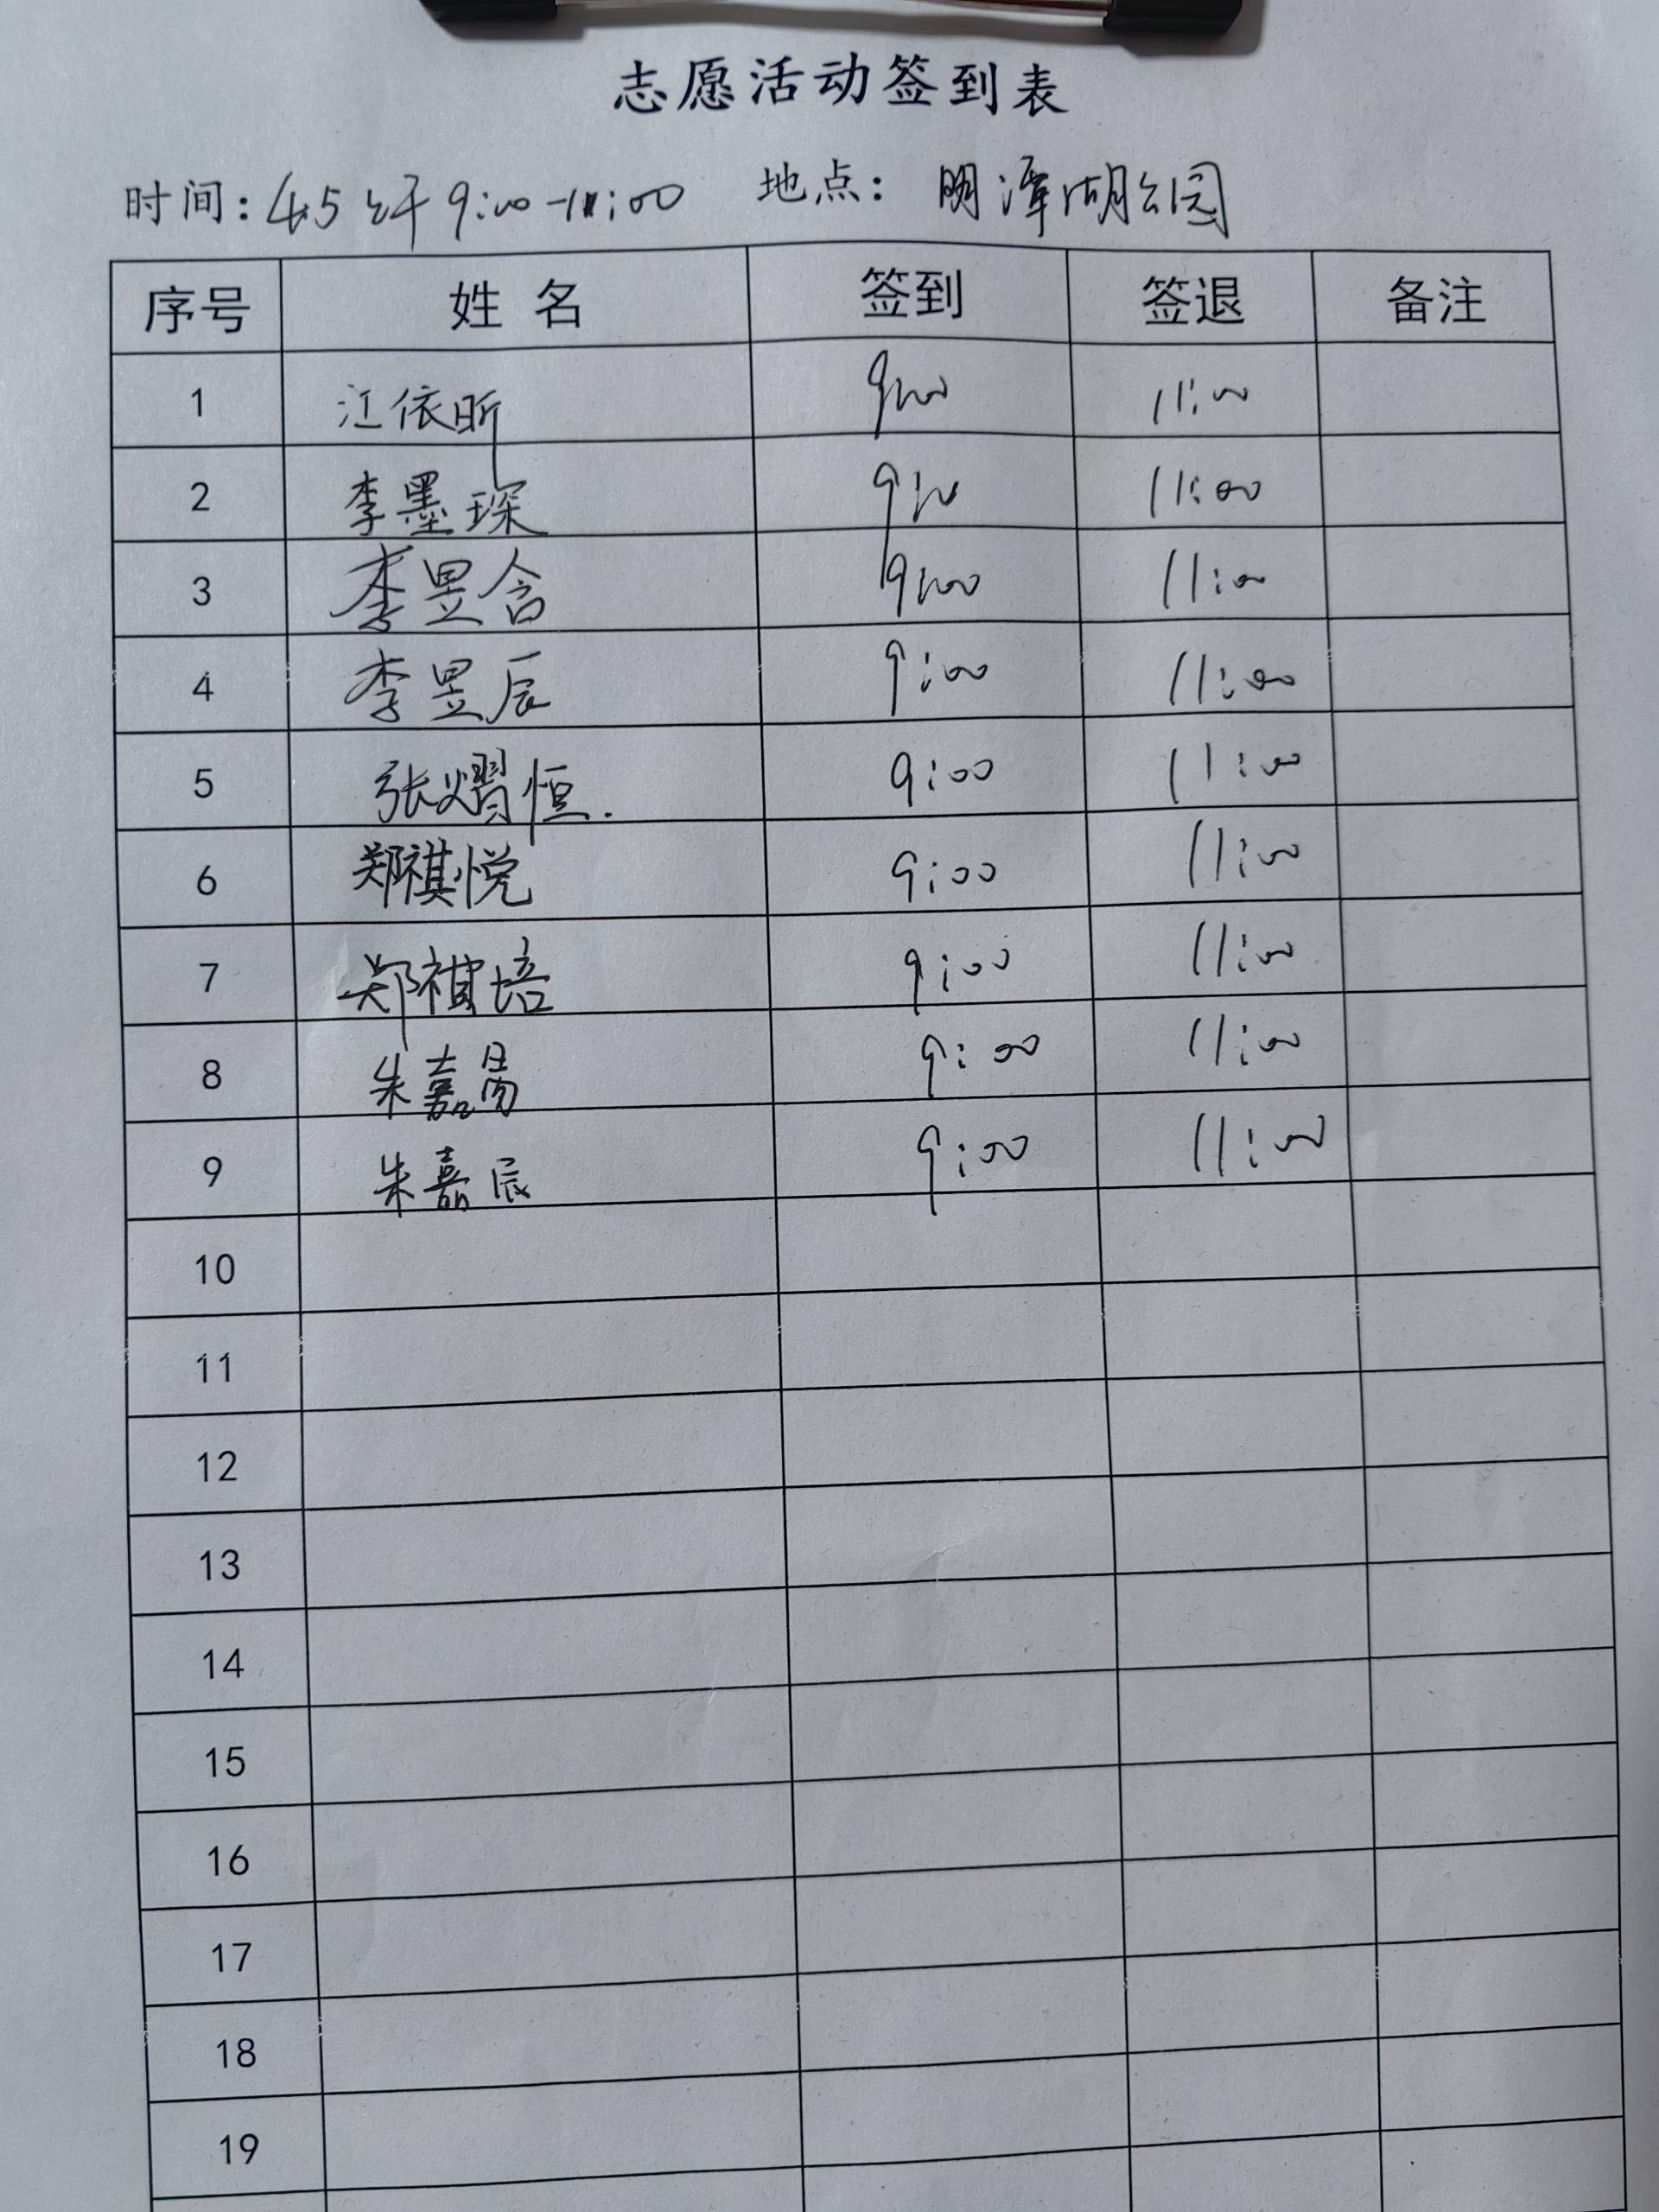 志愿活动签到表
时间: 4.5 上午 9:00-11:00 地点: 明潭湖公园
序号 姓名 签到 签退 备注
1 江依昕 9:00 11:00
2 李墨琛 9:00 11:00
3 李昱含 9:00 11:00
4 李昱辰 9:00 11:00
5 张熠恒. 9:00 11:00
6 郑祺悦 9:00 11:00
7 郑祺培 9:00 11:00
8 朱嘉 9:00 11:00
9 朱嘉辰 9:00 11:00
10
11
12
13
14
15
16
17
18
19